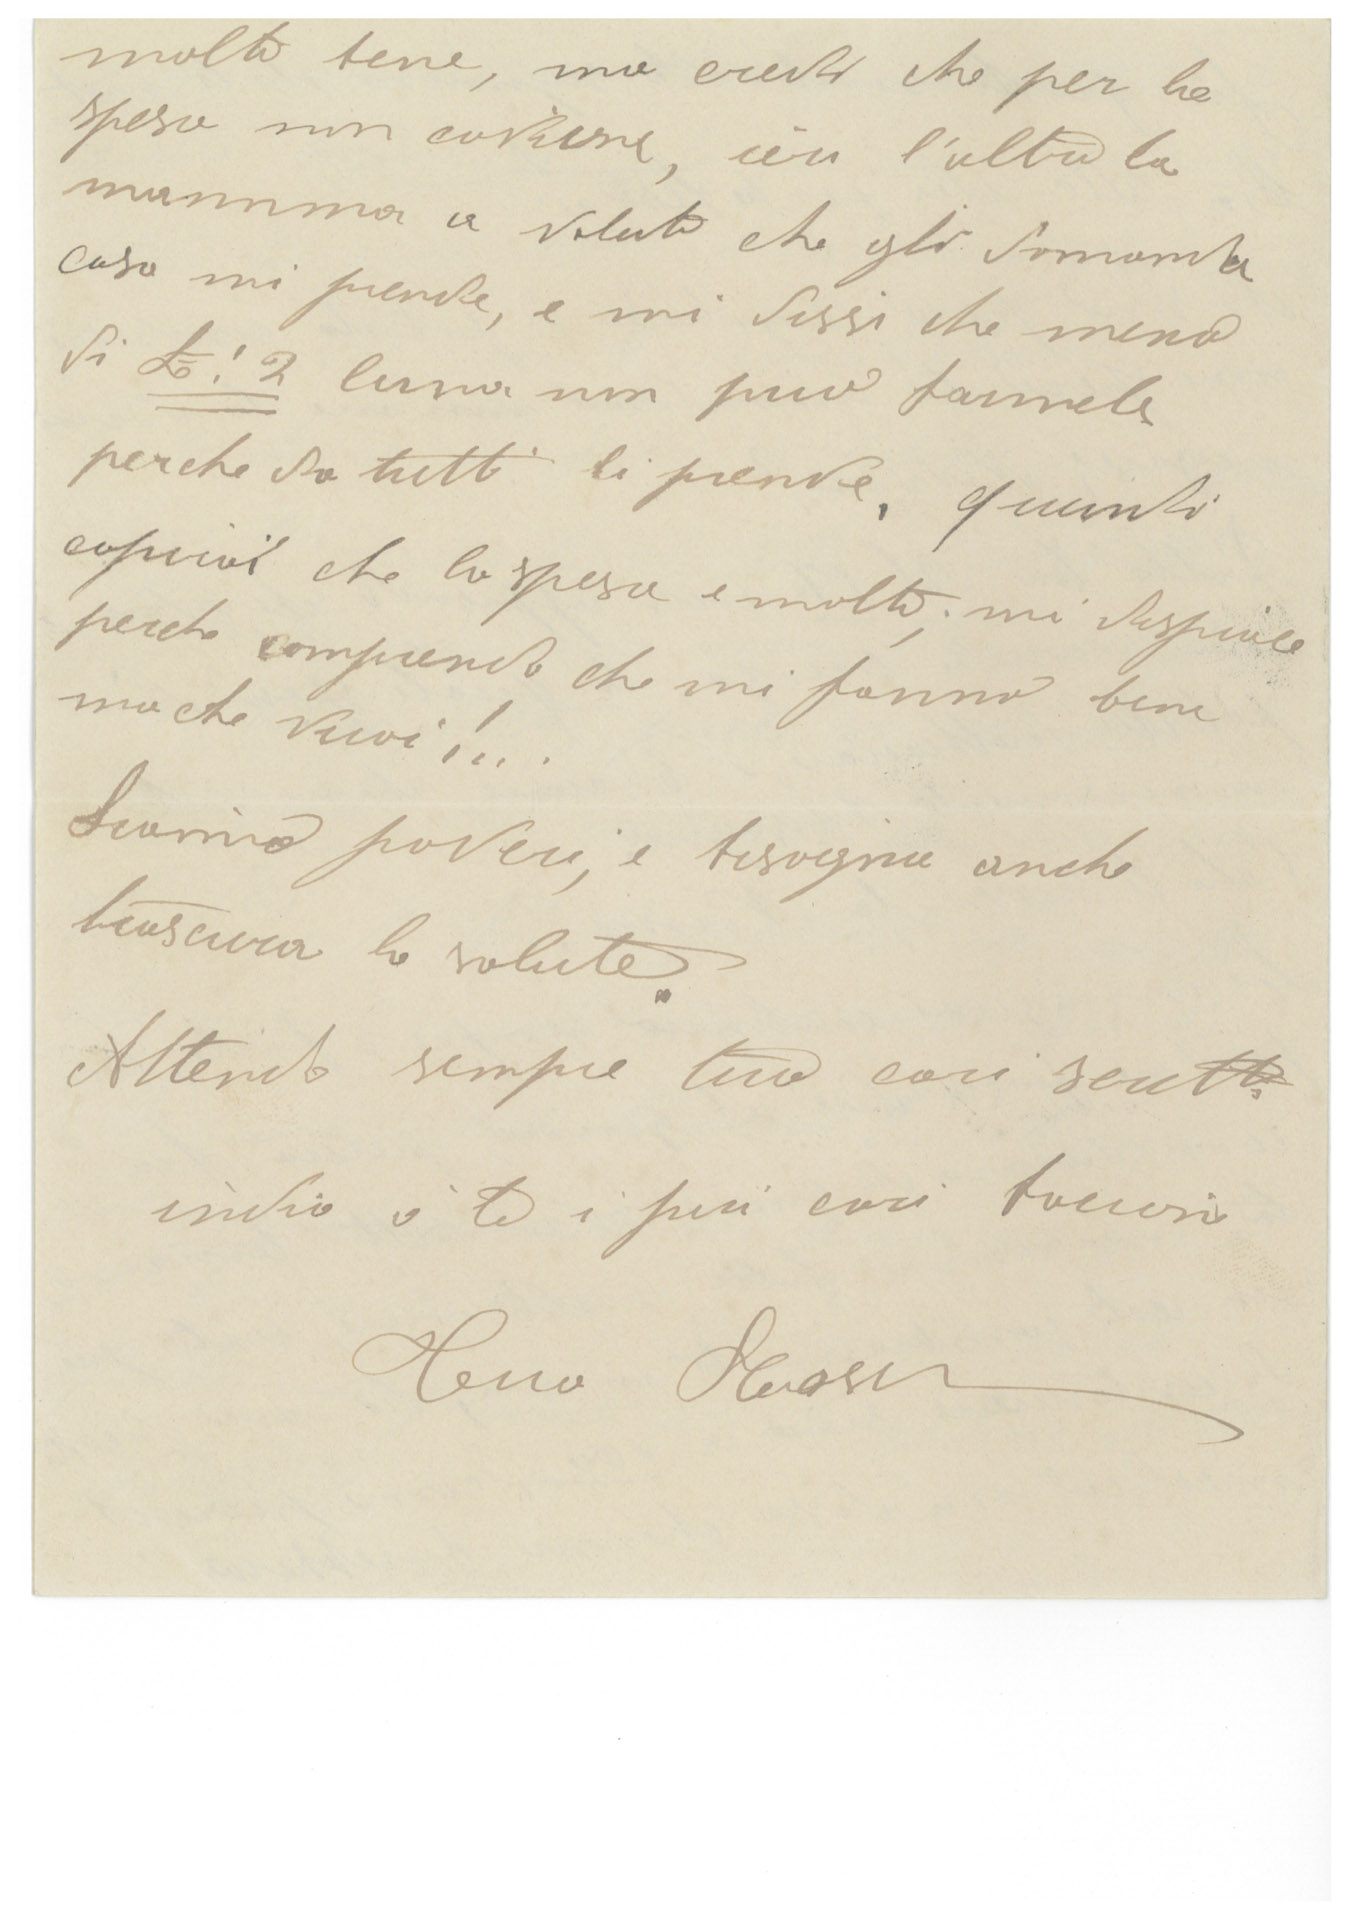 molto bene, ma credi che per la
spesa non coviene, ieri l'altro la
mammma a voluto che gli domanda
cosa mi prende, e mi dissi che meno
di £! 2 luna non può farmele
perche da tutti li prende, quindi
capirai che la spesa e molto, mi dispiace
perche comprendo che mi fanno bene
ma che vuoi!...
Siamo poveri, e bisogna anche
trascura la salute.
Attendo sempre tuo cari scritti
invio à te i più cari baci